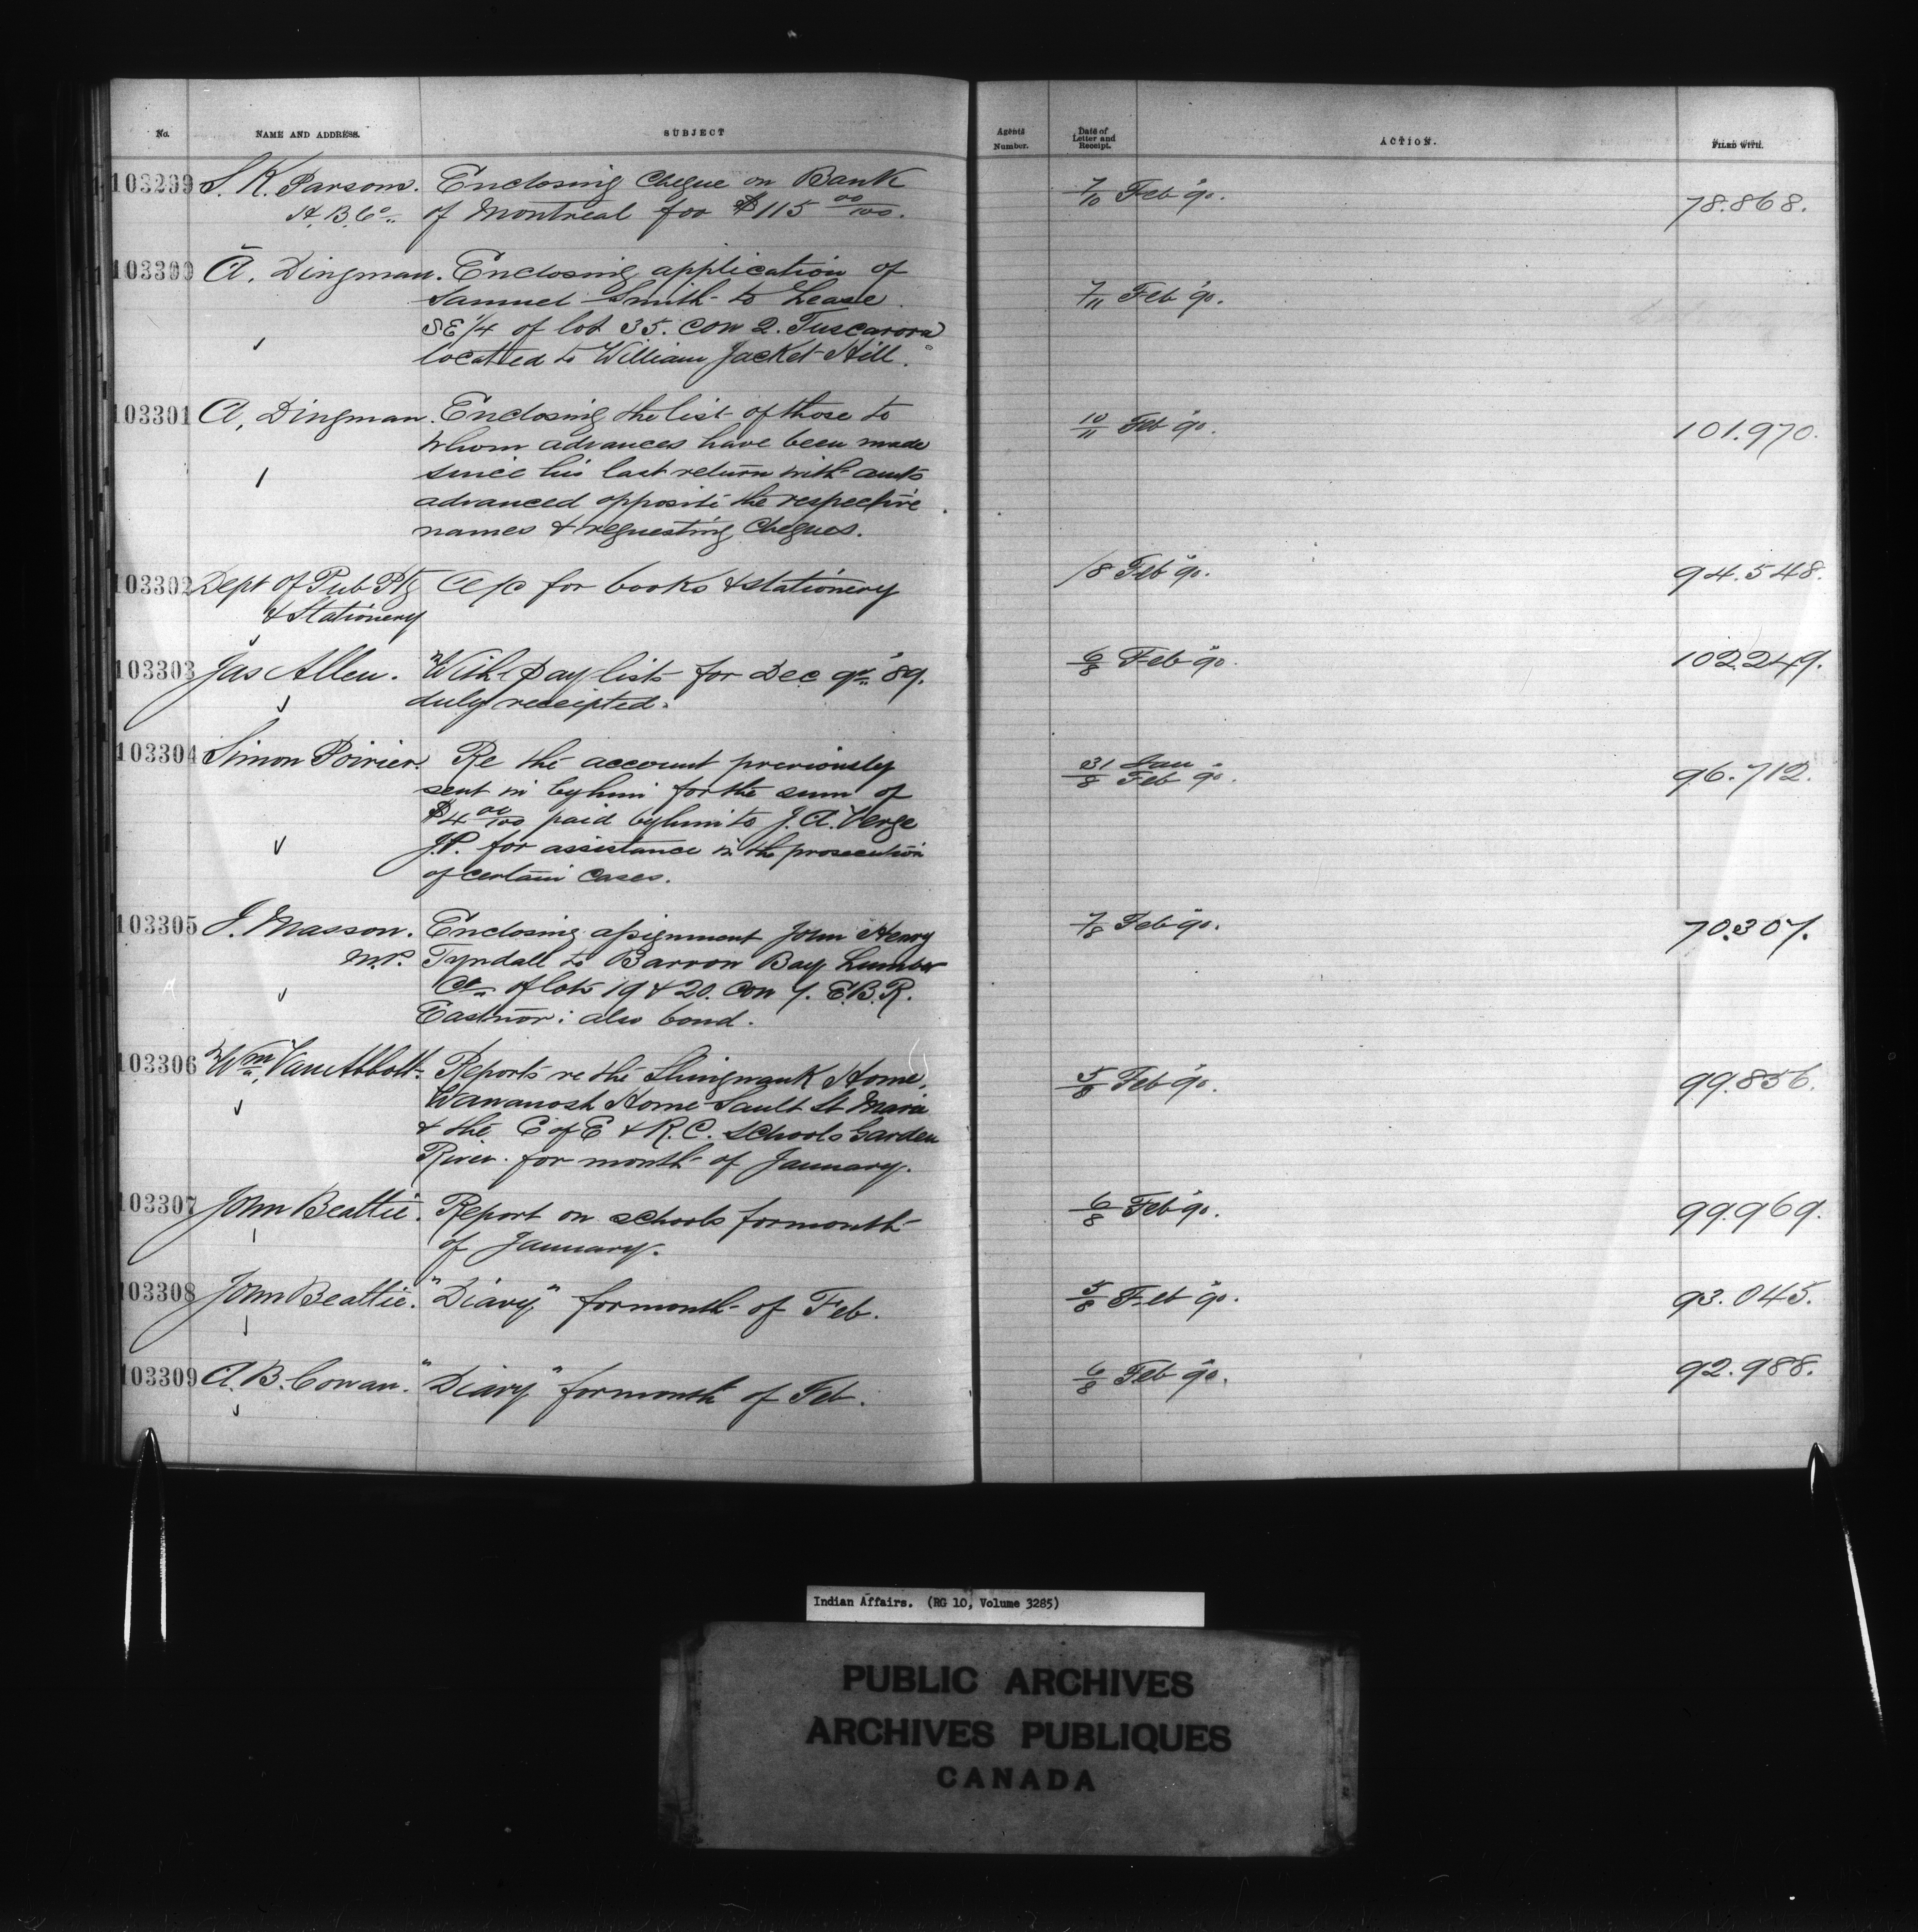 No. NAME AND ADDRESS. SUBJECT Agents Number. Date of Letter and Receipt. ACTION. FILED WITH.
103299 S. K. Parsons. Enclosing Cheque on Bank 7/10 Feb '90. 78.868.
H. B. Co. of Montreal for $115 00/100.
103300 A. Dingman. Enclosing application of 7/11 Feb '90.
Samuel Smith to Lease
SE 1/4 of lot 35. Con 2. Tuscarora
located to William Jacket Hill.
103301 A. Dingman. Enclosing the list of those to 10/11 Feb '90. 101.970.
whom advances have been made
since his last return with amts
advanced opposite the respective
names & requesting Cheques.
103302 Dept of Pub Ptg A/c for books & stationery /8 Feb '90. 94.548.
& Stationery
103303 Jas Allen. With Pay lists for Dec qr '89. 6/8 Feb '90. 102.249.
duly receipted.
103304 Simon Poirier. Re the account previously 31 Jan / 8 Feb '90. 96.712.
sent in by him for the sum of
$4 00/100 paid by him to J. A. Verge
J.P. for assistance in the prosecution
of certain cases.
103305 J. Masson. Enclosing assignment John Henry 7/8 Feb '90. 70.307.
M.P. Tyndall to Barron Bay Lumber
Co. of lots 19 & 20. Con 7. E.B.R.
Eastnor: also bond.
103306 Wm Van Abbott. Reports re the Shingwauk Home, 5/8 Feb '90. 99.856.
Wawanosh Home Sault St Marie
& the C of E & R.C. Schools Garden
River. for month of January.
103307 John Beattie. Report on schools for month 6/8 Feb '90. 99.969.
of January.
103308 John Beattie. "Diary" for month of Feb. 5/8 Feb '90. 93.045.
103309 A. B. Cowan. "Diary" for month of Feb. 6/8 Feb '90. 92.988.
Indian Affairs. (RG 10, Volume 3285)
PUBLIC ARCHIVES
ARCHIVES PUBLIQUES
CANADA